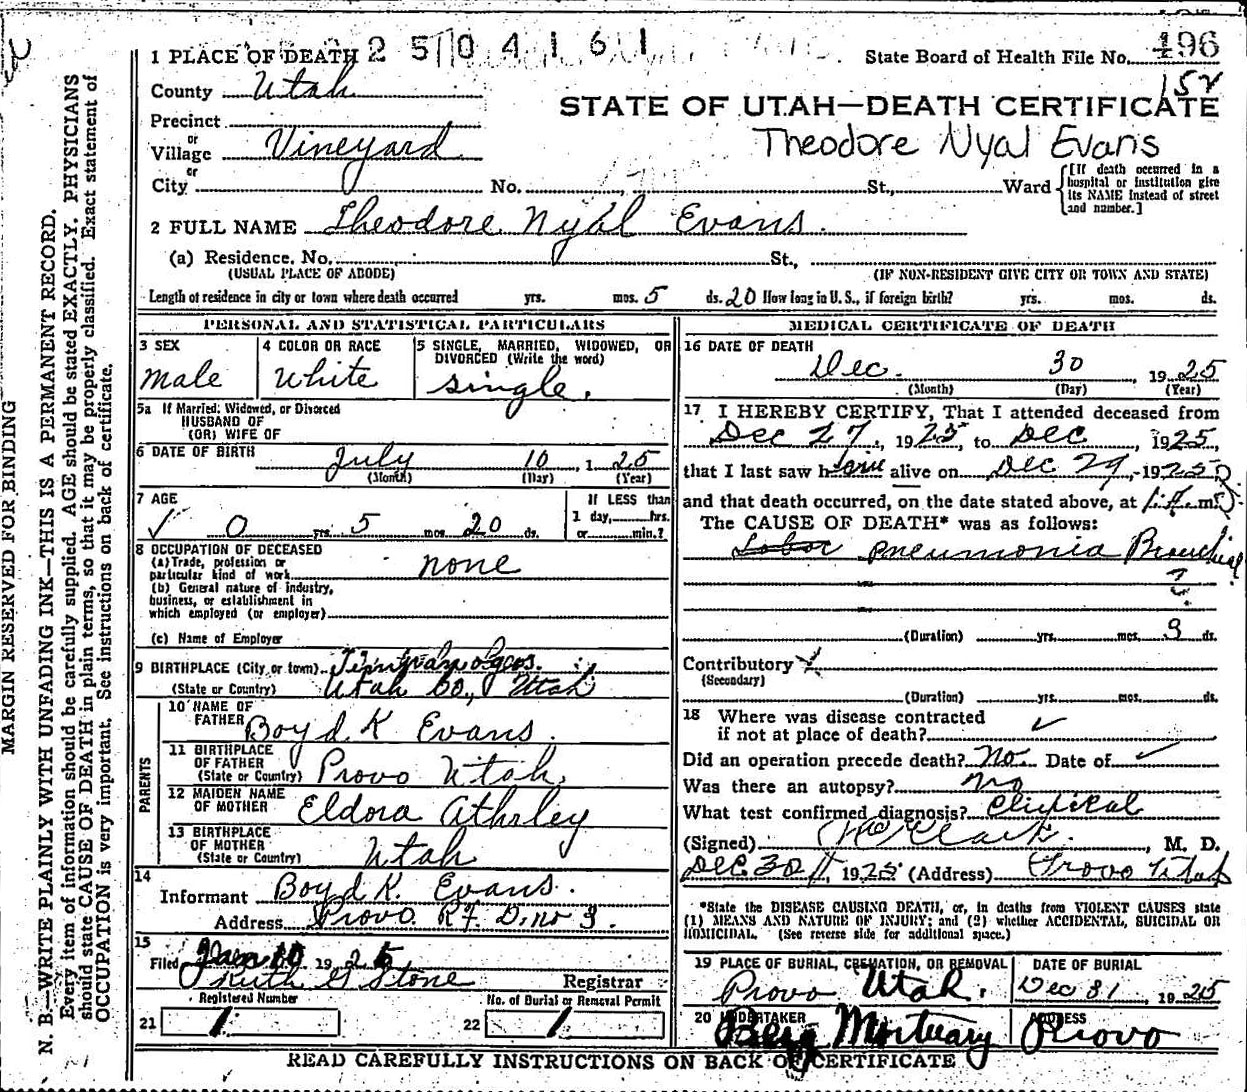 1 PLACE OF DEATH 2 5 0 4 1 6 1
State Board of Health File No. 496
152
County Utah
STATE OF UTAH—DEATH CERTIFICATE
Precinct
or
Village Vineyard
Theodore Nyal Evans
or
City No. St., Ward
[If death occurred in a hospital or institution give its NAME instead of street and number.]
2 FULL NAME Theodore Nyal Evans.
(a) Residence. No. St.,
(USUAL PLACE OF ABODE) (IF NON-RESIDENT GIVE CITY OR TOWN AND STATE)
Length of residence in city or town where death occurred yrs. mos. 5 ds. 20 How long in U. S., if foreign birth? yrs. mos. ds.
PERSONAL AND STATISTICAL PARTICULARS
3 SEX
Male
4 COLOR OR RACE
White
5 SINGLE, MARRIED, WIDOWED, OR
DIVORCED (Write the word)
Single.
5a If Married, Widowed, or Divorced
HUSBAND OF
(OR) WIFE OF
6 DATE OF BIRTH July 10, 1 25
(Month) (Day) (Year)
7 AGE
0 yrs. 5 mos. 20 ds.
If LESS than
1 day, hrs.
or min.?
8 OCCUPATION OF DECEASED
(a) Trade, profession or
particular kind of work none
(b) General nature of industry,
business, or establishment in
which employed (or employer)
(c) Name of Employer
9 BIRTHPLACE (City or town)
(State or Country) Utah Co., Utah
PARENTS
10 NAME OF
FATHER Boyd K Evans.
11 BIRTHPLACE
OF FATHER
(State or Country) Provo Utah.
12 MAIDEN NAME
OF MOTHER Eldora Athrley
13 BIRTHPLACE
OF MOTHER
(State or Country) Utah
14
Informant Boyd K. Evans.
Address Provo R.F.D. no 3.
15
Filed Jan 10 1926
Ruth G Stone Registrar
Registered Number
21 1
No. of Burial or Removal Permit
22 1
MEDICAL CERTIFICATE OF DEATH
16 DATE OF DEATH
Dec. 30, 1925
(Month) (Day) (Year)
17 I HEREBY CERTIFY, That I attended deceased from
Dec 27, 1925 to Dec, 1925,
that I last saw him alive on Dec 29, 1925
and that death occurred, on the date stated above, at m.
The CAUSE OF DEATH* was as follows:
Lobar pneumonia Bronchial
?
(Duration) yrs. mos. 3 ds.
Contributory
(Secondary)
(Duration) yrs. mos. ds.
18 Where was disease contracted
if not at place of death? ✓
Did an operation precede death? No. Date of ✓
Was there an autopsy? no
What test confirmed diagnosis? Clinical
(Signed) Clark, M. D.
Dec 30, 1925 (Address) Provo Utah
*State the DISEASE CAUSING DEATH, or, in deaths from VIOLENT CAUSES state
(1) MEANS AND NATURE OF INJURY; and (2) whether ACCIDENTAL, SUICIDAL OR
HOMICIDAL. (See reverse side for additional space.)
19 PLACE OF BURIAL, CREMATION, OR REMOVAL
Provo Utah.
DATE OF BURIAL
Dec 31, 1925
20 UNDERTAKER
Berg Mortuary
ADDRESS
Provo
READ CAREFULLY INSTRUCTIONS ON BACK OF CERTIFICATE
MARGIN RESERVED FOR BINDING
N. B.—WRITE PLAINLY WITH UNFADING INK—THIS IS A PERMANENT RECORD.
Every item of information should be carefully supplied. AGE should be stated EXACTLY. PHYSICIANS
should state CAUSE OF DEATH in plain terms, so that it may be properly classified. Exact statement of
OCCUPATION is very important. See instructions on back of certificate.